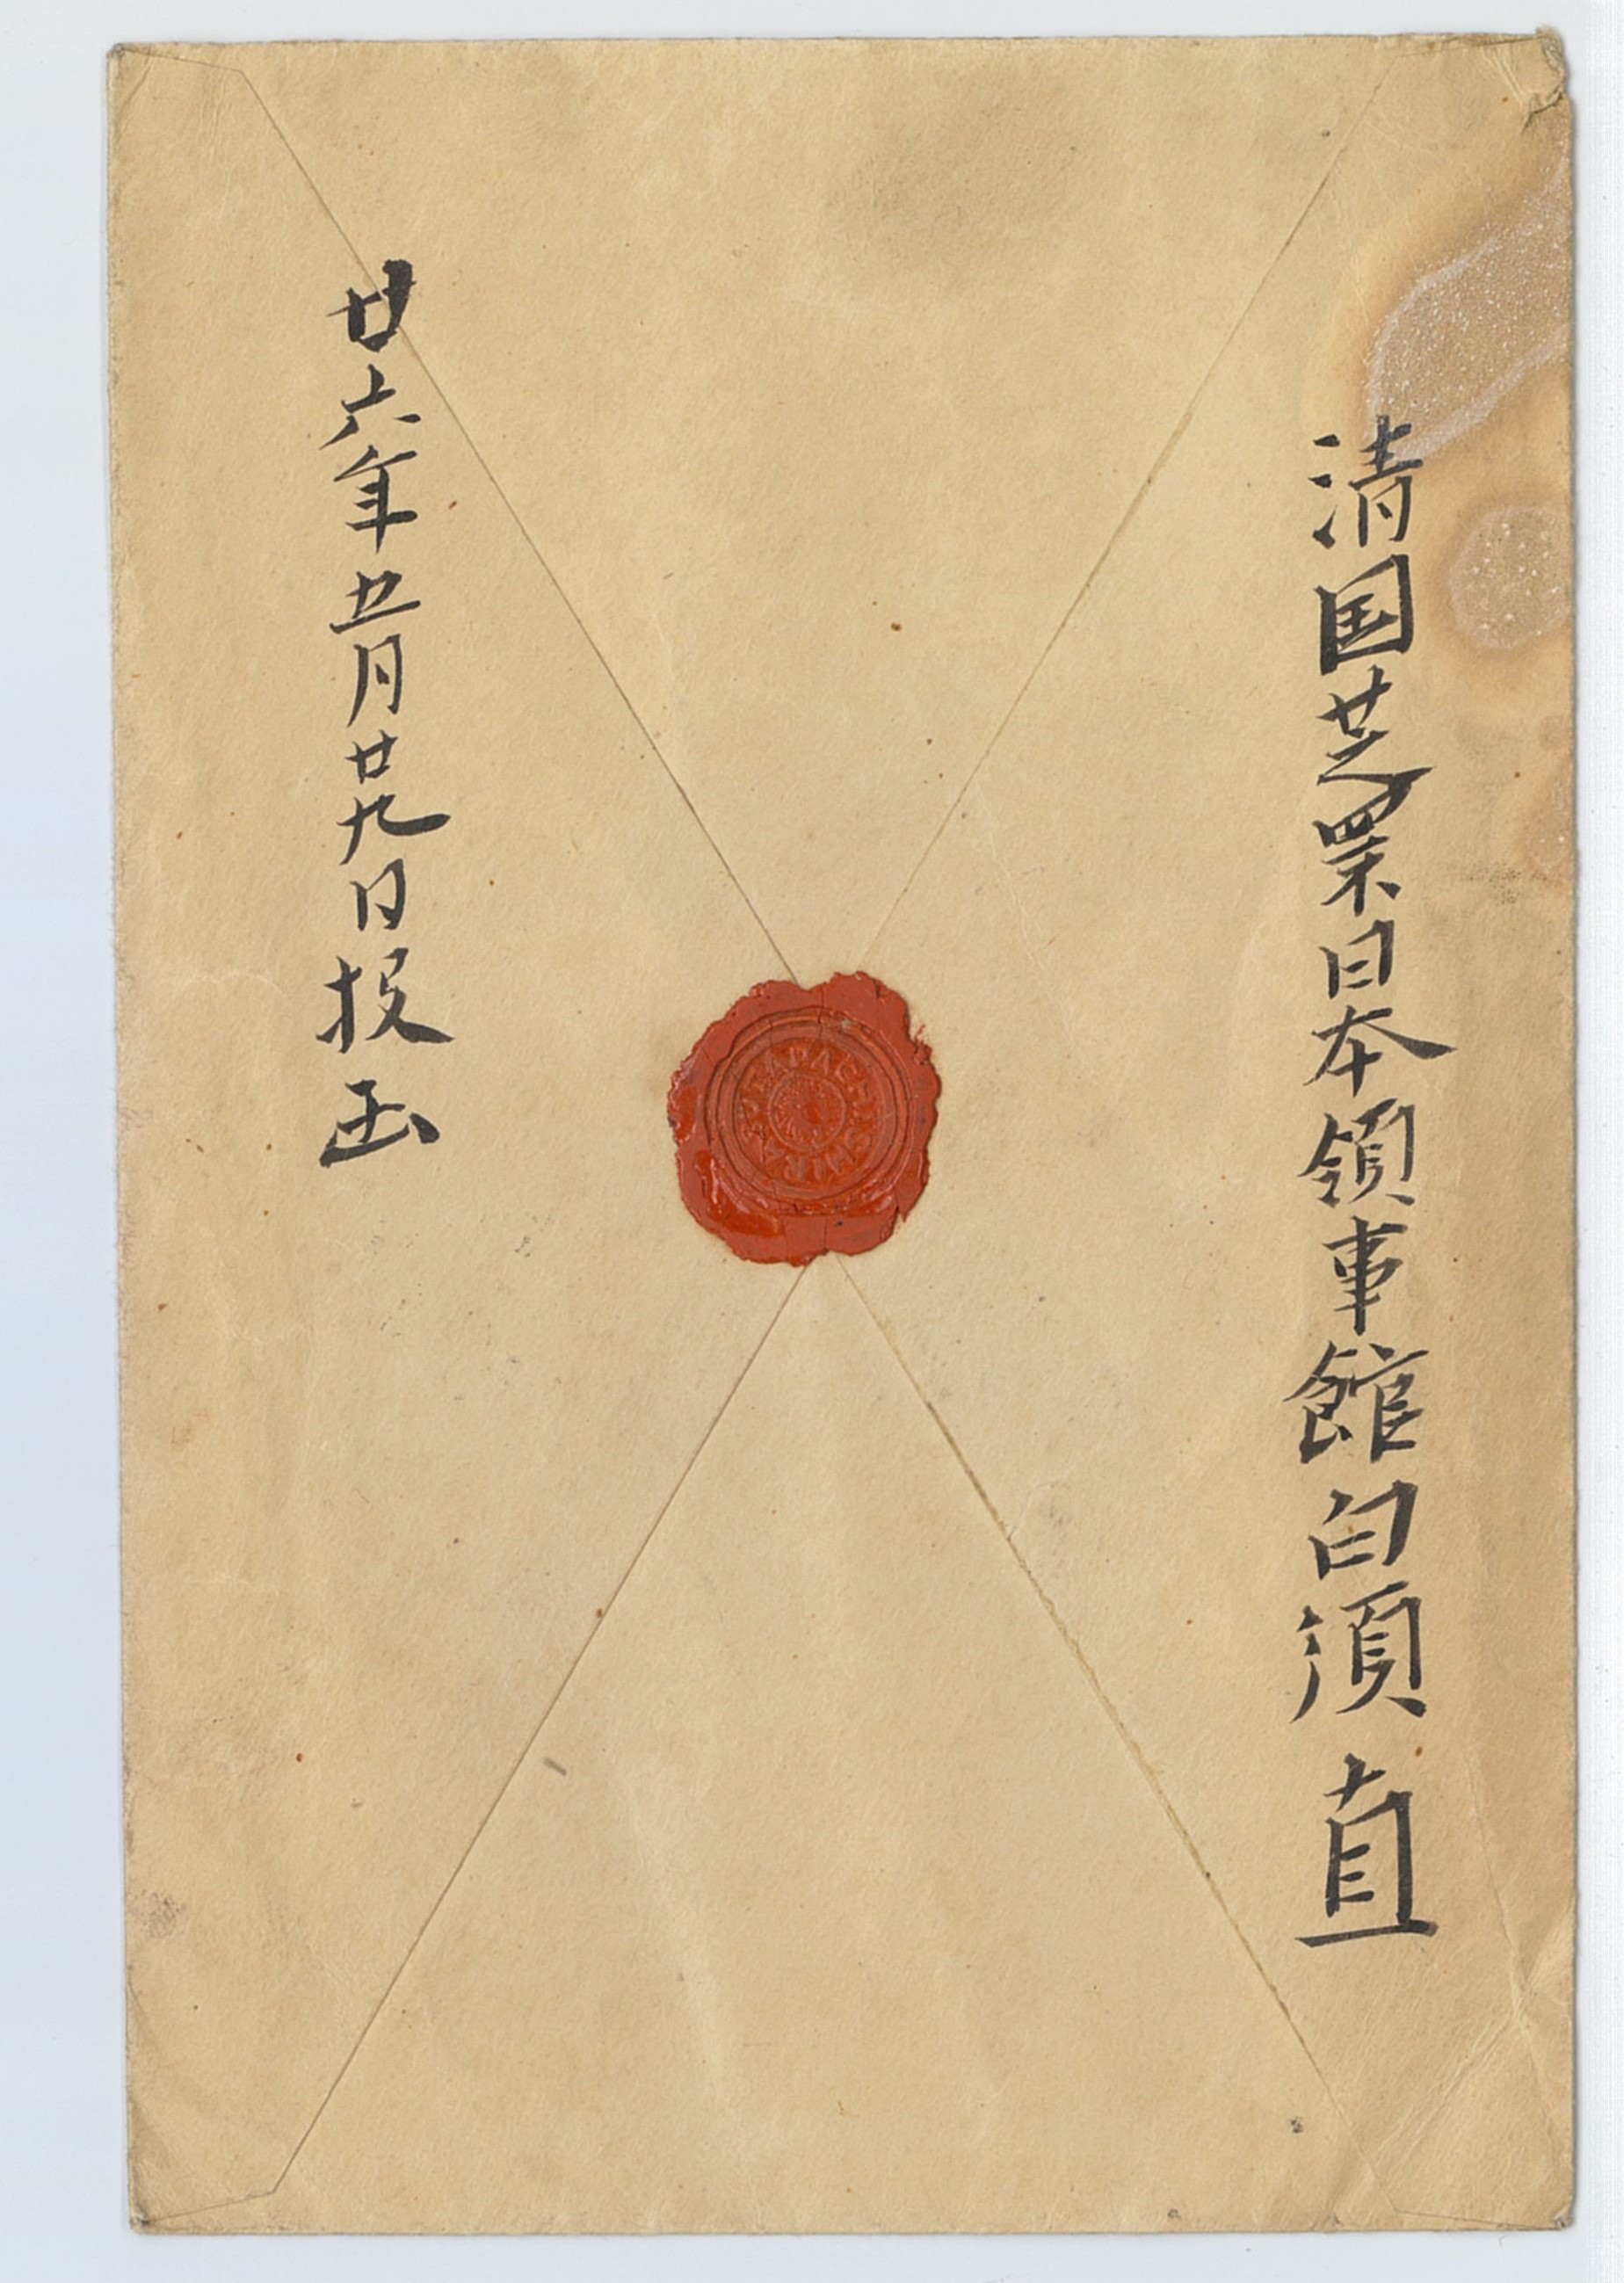 清国芝罘日本領事館白須直
廿六年五月廿九日投函